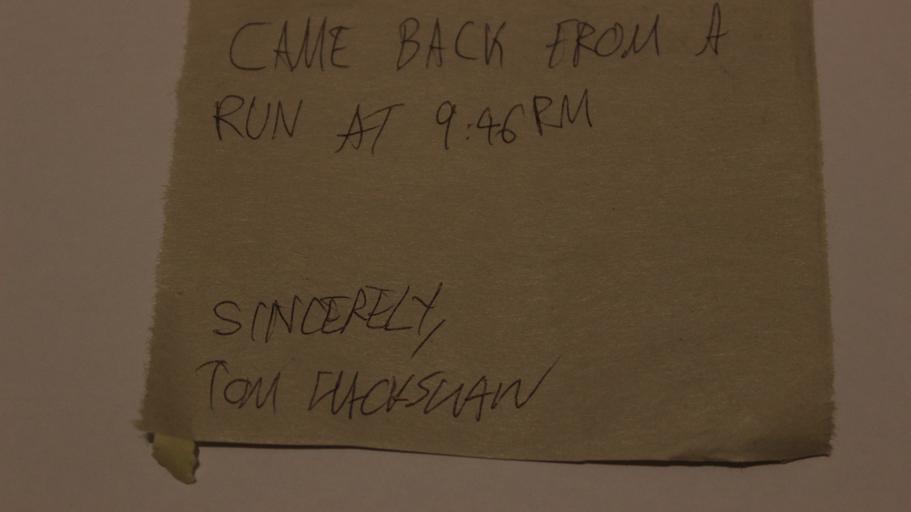 CAME BACK FROM A
RUN AT 9:46PM
SINCERELY,
TOM HACKSHAW